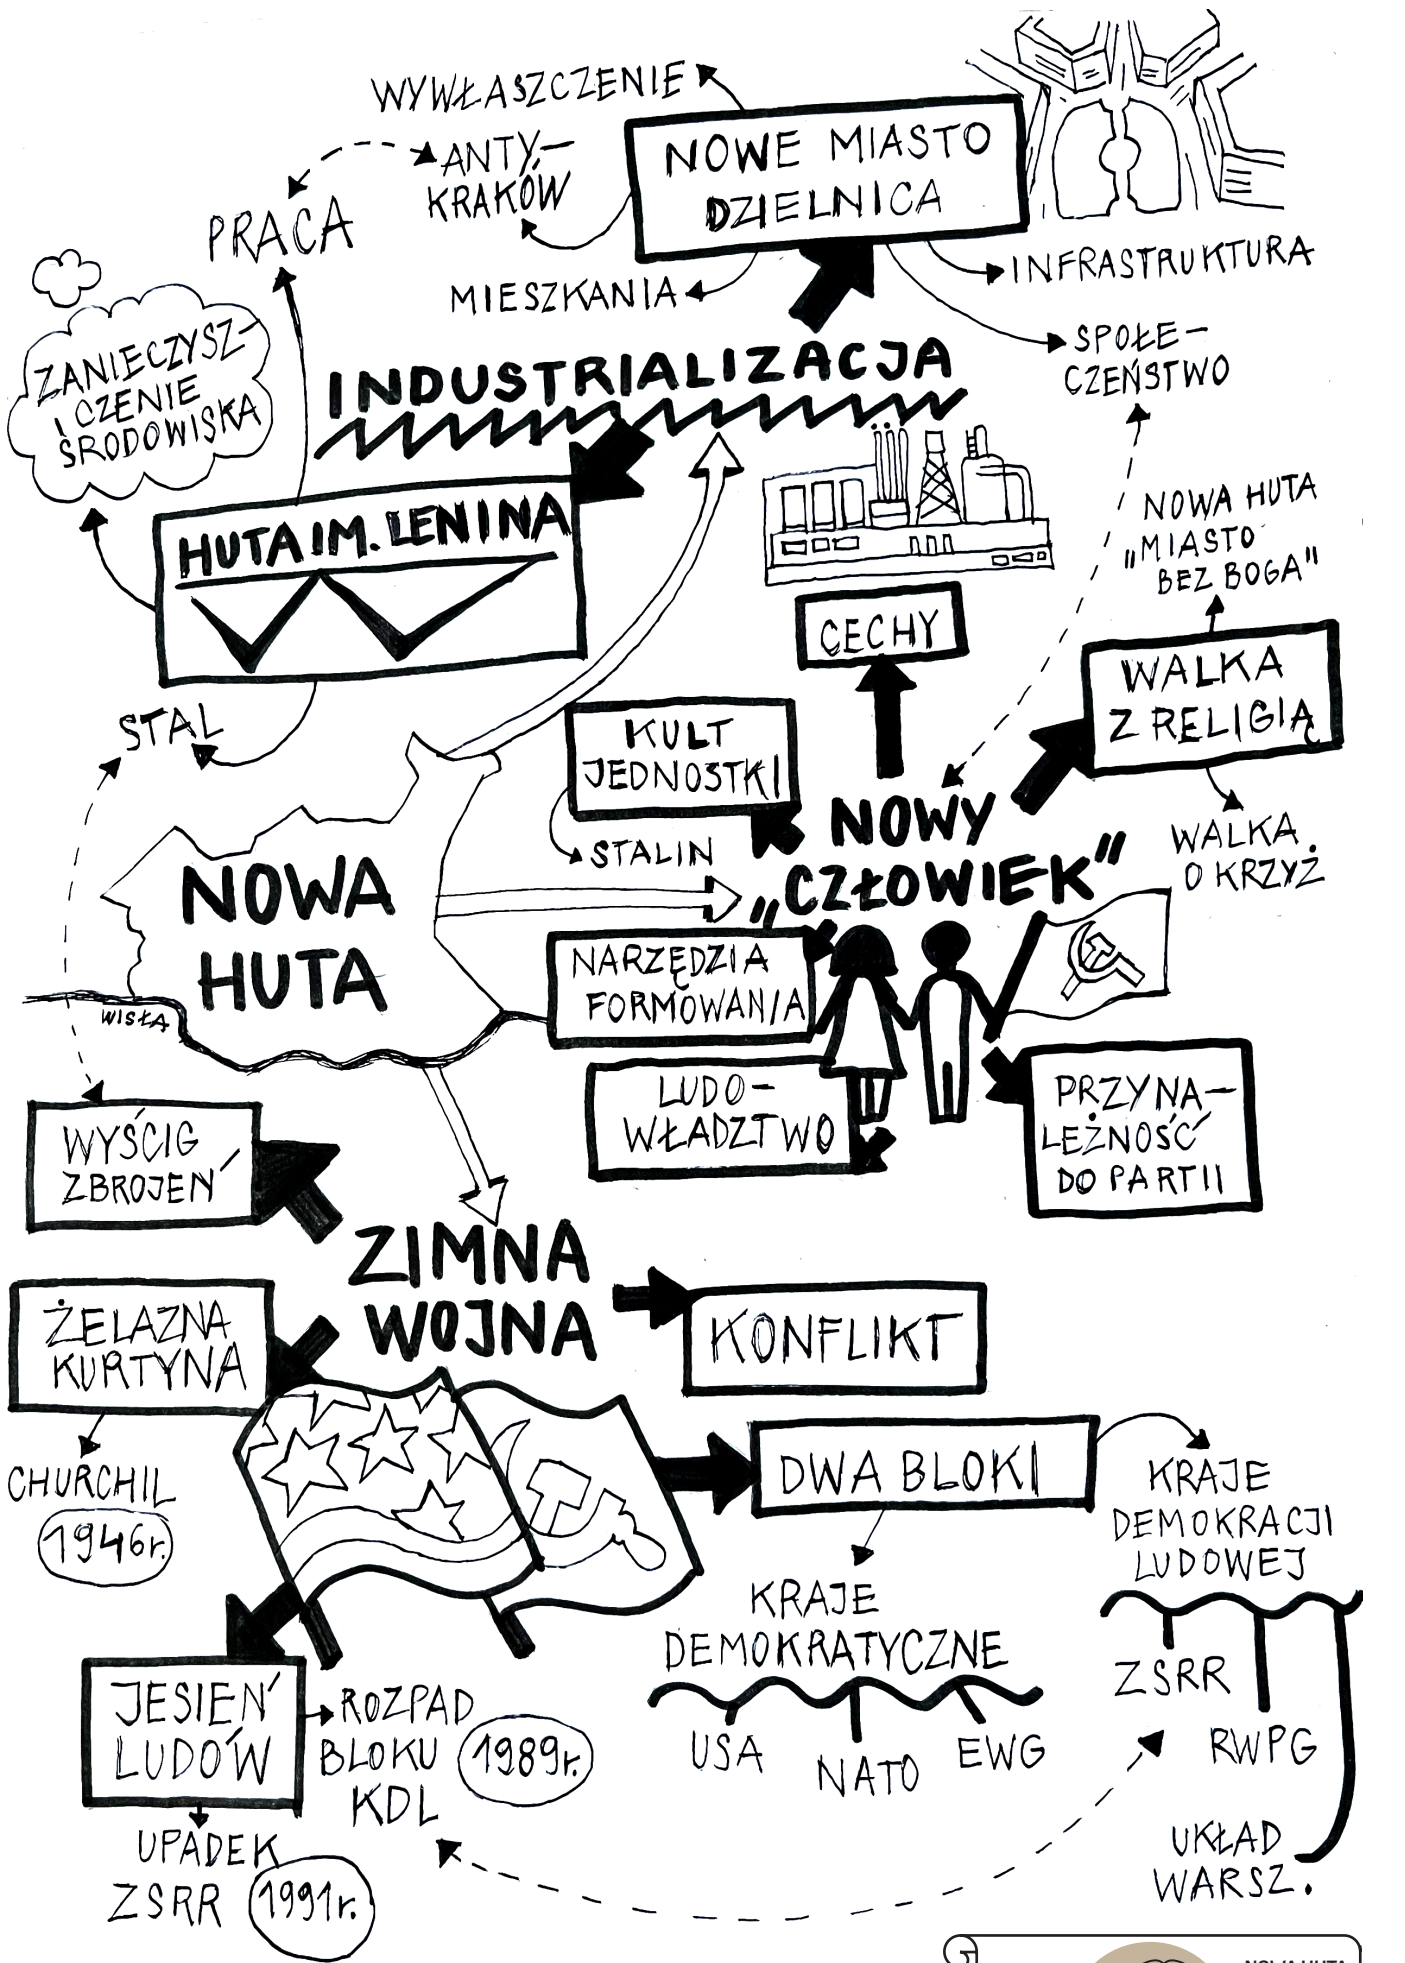 WYWŁASZCZENIE
ANTY-
KRAKÓW
NOWE MIASTO
DZIELNICA
PRACA
MIESZKANIA
INFRASTRUKTURA
SPOŁE-
CZEŃSTWO
ZANIECZYSZ-
CZENIE
ŚRODOWISKA
INDUSTRIALIZACJA
HUTA IM. LENINA
STAL
CECHY
NOWA HUTA
„MIASTO
BEZ BOGA"
WALKA
Z RELIGIĄ
WALKA
O KRZYŻ
KULT
JEDNOSTKI
STALIN
NOWY
„CZŁOWIEK"
NOWA
HUTA
WISŁA
NARZĘDZIA
FORMOWANIA
LUDO-
WŁADZTWO
PRZYNA-
LEŻNOŚĆ
DO PARTII
WYŚCIG
ZBROJEŃ
ZIMNA
WOJNA
ŻELAZNA
KURTYNA
CHURCHIL
1946r.
KONFLIKT
DWA BLOKI
KRAJE
DEMOKRACJI
LUDOWEJ
ZSRR
RWPG
UKŁAD
WARSZ.
KRAJE
DEMOKRATYCZNE
USA
NATO
EWG
JESIEŃ
LUDÓW
ROZPAD
BLOKU
KDL
1989r.
UPADEK
ZSRR
1991r.